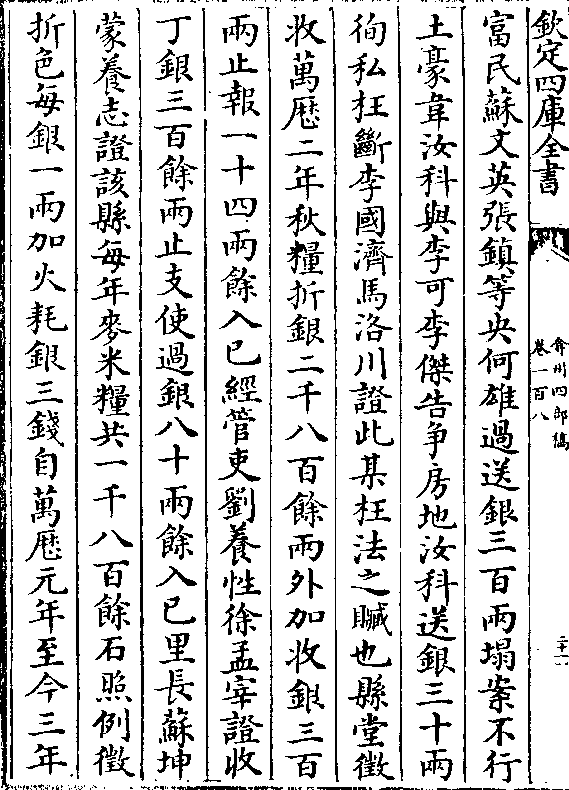 欽定四庫全書
弇州四部稿
卷一百八
二十一
富民蘇文英張鎮等央何雄過送銀三百兩塌案不行
土豪韋汝科與李可李傑告争房地汝科送銀三十兩
徇私枉斷李國濟馬洛川證此某枉法之贓也縣堂徵
收萬厯二年秋糧折銀二千八百餘兩外加收銀三百
兩止報一十四兩餘入已經管吏劉養性徐孟宰證收
丁銀三百餘兩止支使過銀八十兩餘入已里長蘇坤
蒙養志證該縣每年麥米糧共一千八百餘石照例徵
折色每銀一兩加火耗銀三錢自萬厯元年至今三年